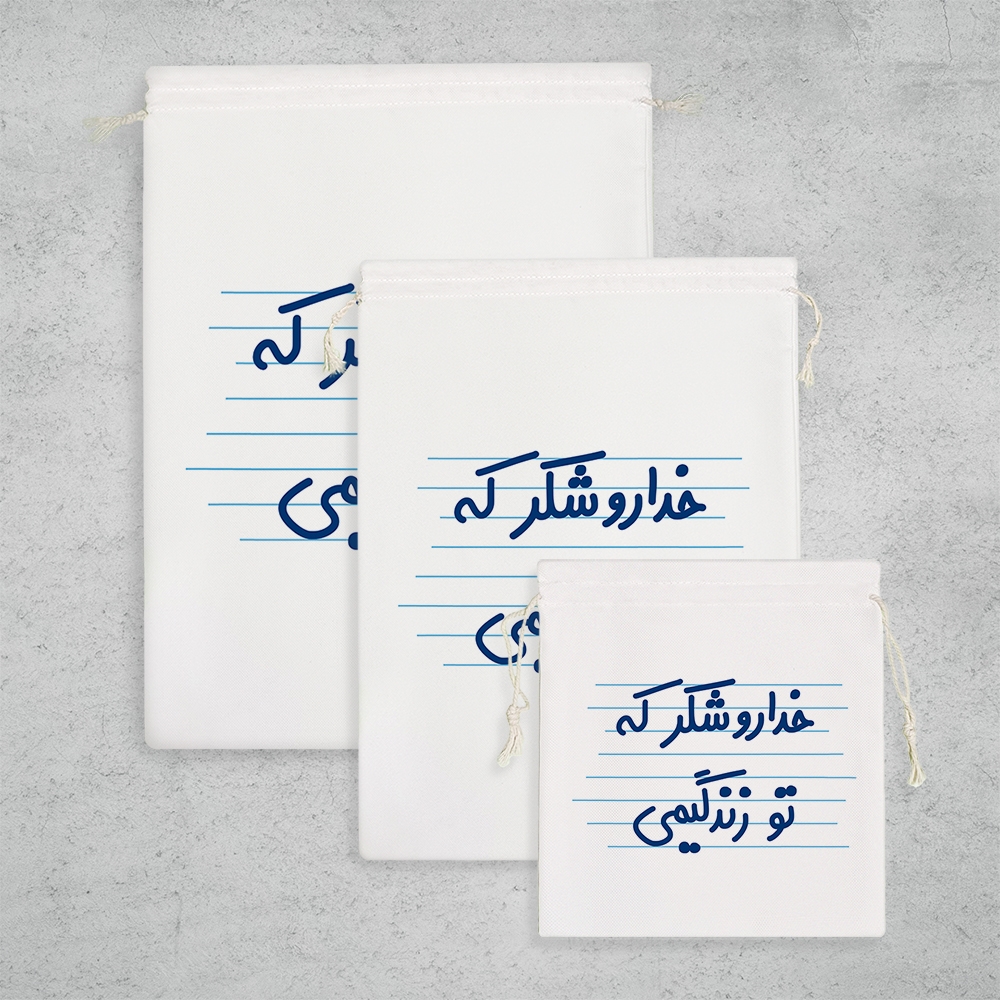 که
خدارو شکر که
خدارو شکر که
تو زندگیمی